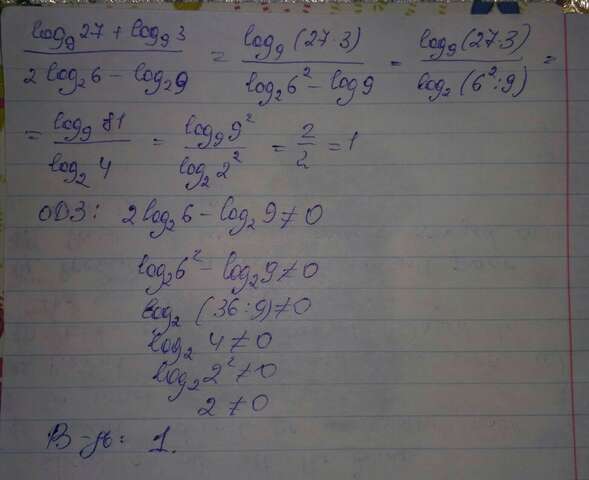 (log₉27 + log₉3)/(2log₂6 − log₂9) = (log₉(27·3))/(log₂6² − log9) = (log₉(27·3))/(log₂(6²:9)) =
= (log₉81)/(log₂4) = (log₉9²)/(log₂2²) = 2/2 = 1
ОДЗ: 2log₂6 − log₂9 ≠ 0
log₂6² − log₂9 ≠ 0
log₂(36:9) ≠ 0
log₂4 ≠ 0
log₂2² ≠ 0
2 ≠ 0
В-дь: 1.